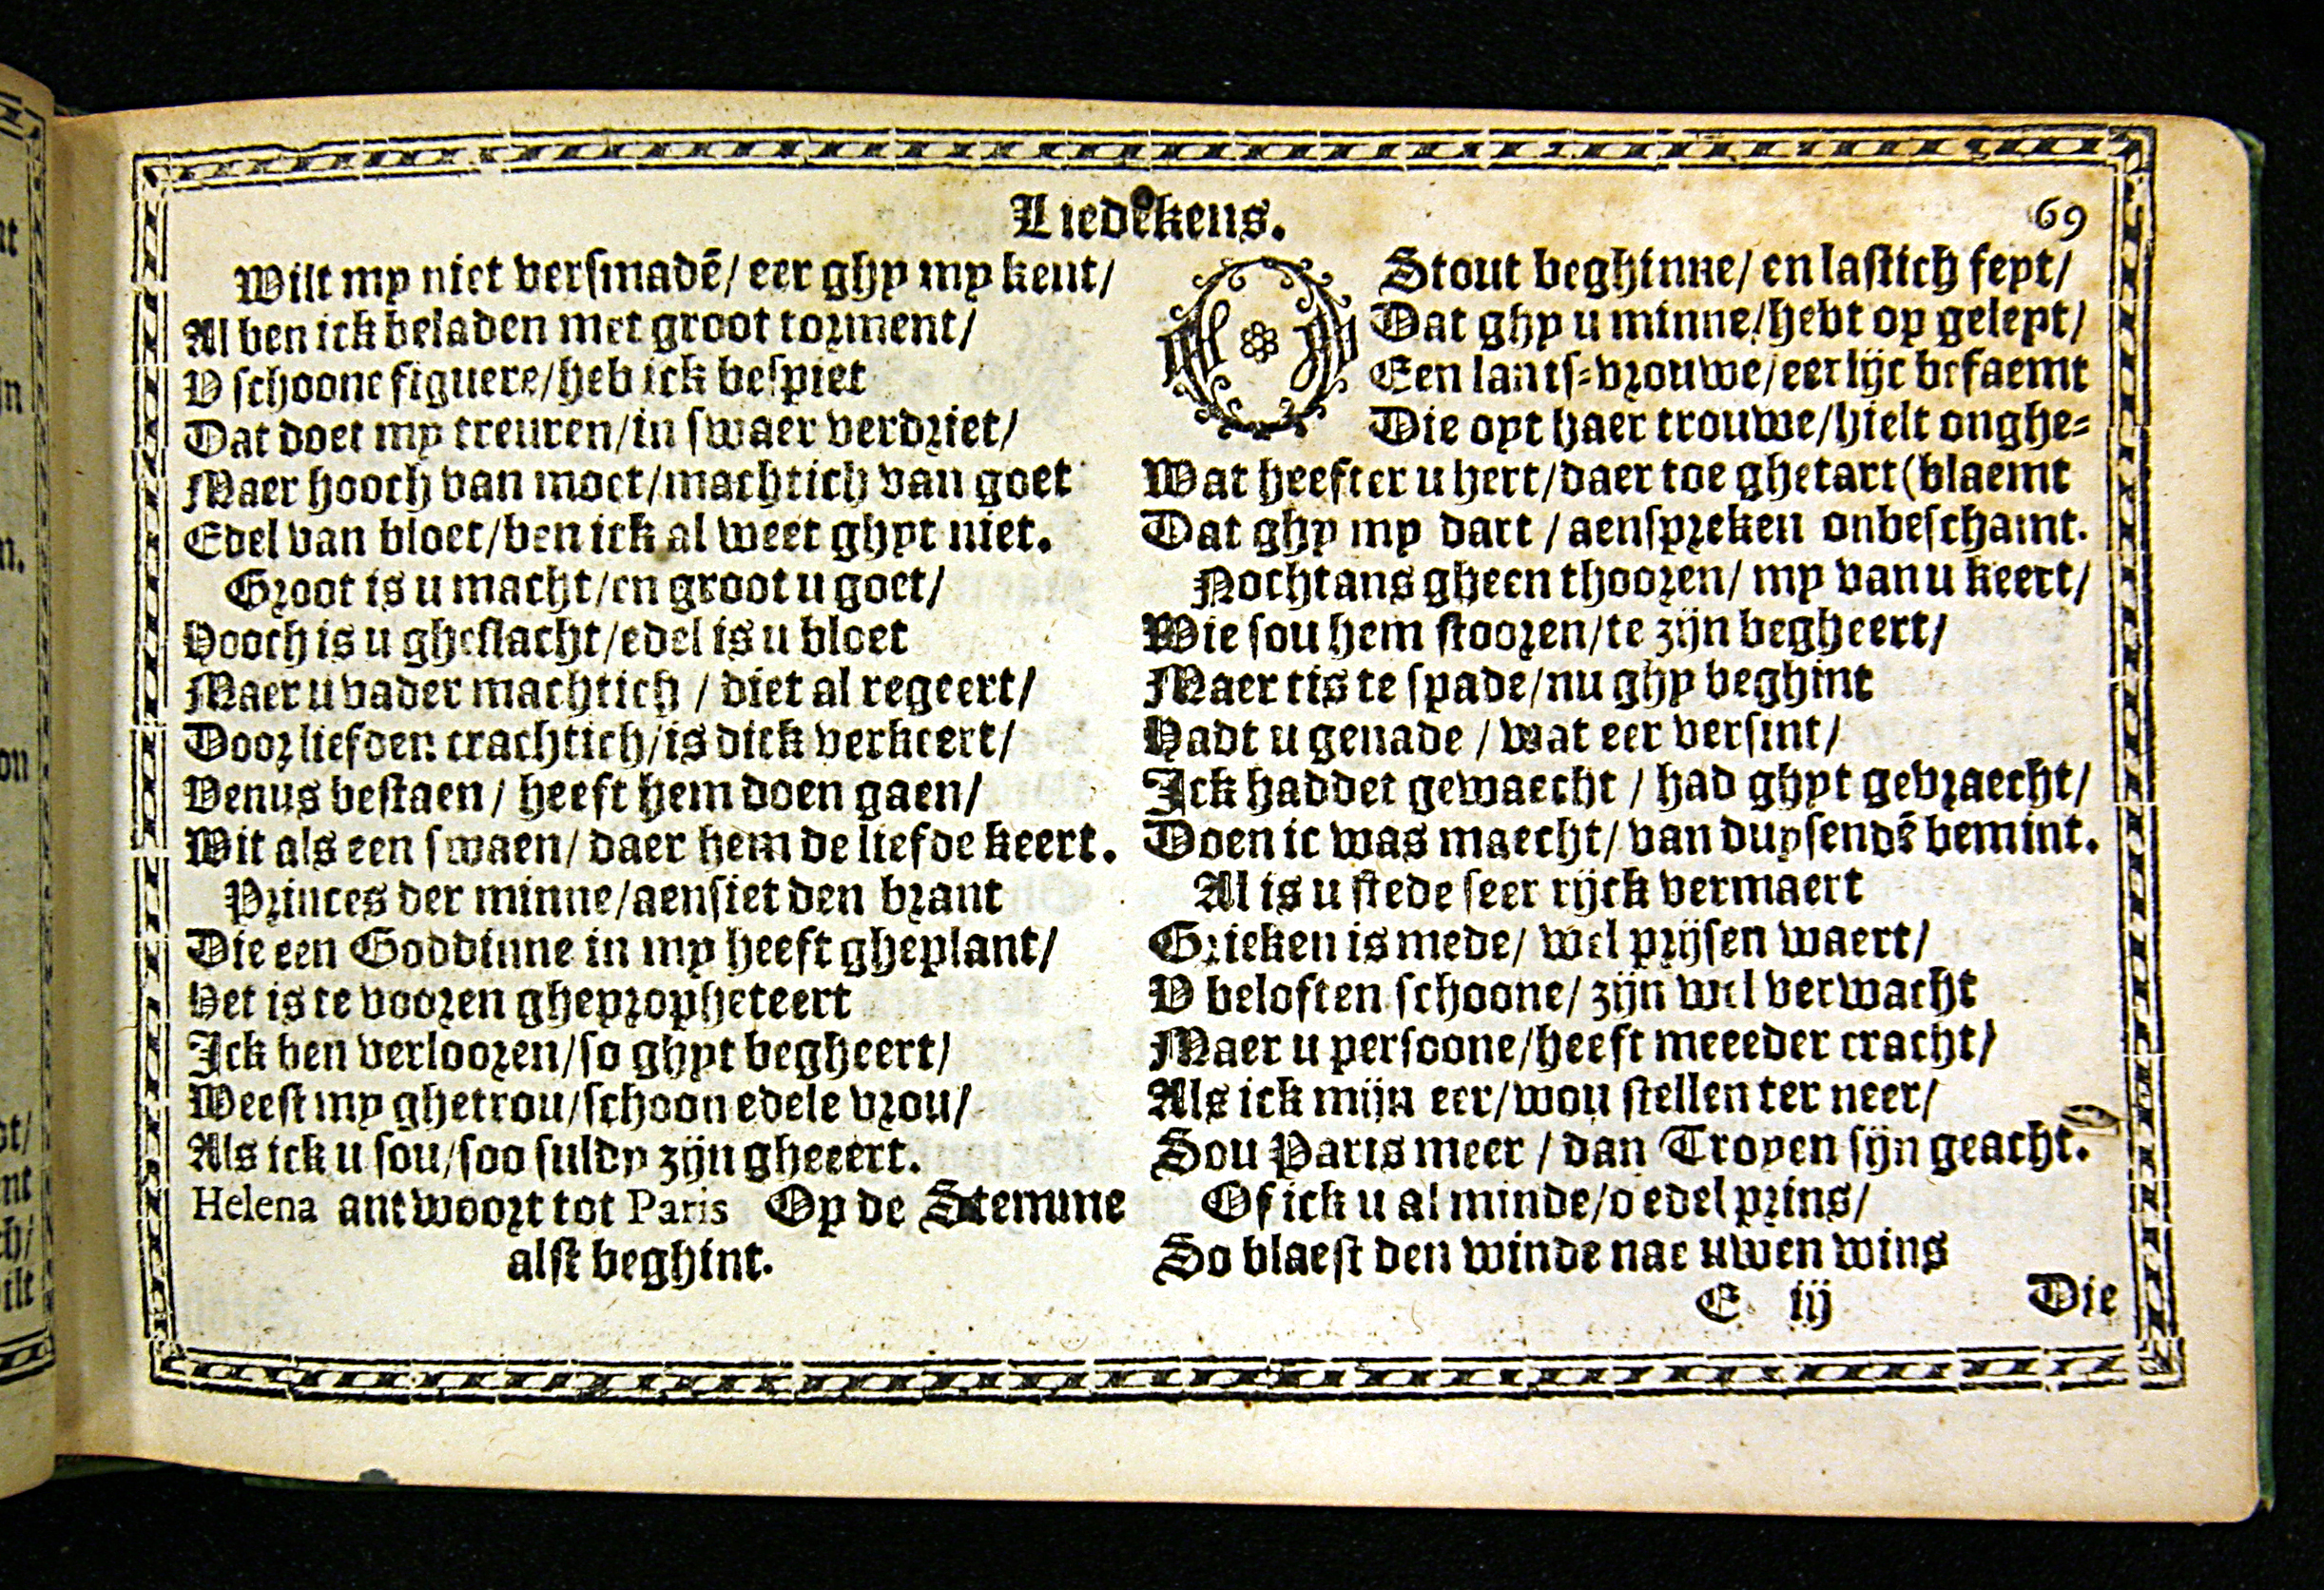 Liedekens.
69
Wilt my niet versmadē/ eer ghy my kent/
Al ben ick beladen met groot torment/
V schoone figuere/heb ick bespiet
Dat doet my treuren/in swaer verdriet/
Maer hooch van moet/machtich van goet
Edel van bloet/ben ick al weet ghyt niet.
Groot is u macht/en groot u goet/
Hooch is u gheslacht/edel is u bloet
Maer u vader machtich / diet al regeert/
Door liefden crachtich/is dick verkeert/
Venus bestaen / heeft hem doen gaen/
Wit als een swaen/ daer hem de liefde keert.
Princes der minne/aensiet den brant
Die een Goddinne in my heeft gheplant/
Het is te vooren ghepropheteert
Ick ben verlooren/so ghyt begheert/
Weest my ghetrou/schoon edele vrou/
Als ick u sou/soo suldy zijn gheeert.
Helena antwoort tot Paris Op de Stemme
alst beghint.
O Stout beghinne/ en lastich feyt/
Dat ghy u minne/hebt op geleyt/
Een lants-vrouwe/eerlijc befaemt
Die oyt haer trouwe/hielt onghe-
Wat heefter u hert/daer toe ghetart(blaemt
Dat ghy my dart / aenspreken onbeschamt.
Nochtans gheen thooren/ my van u keert/
Wie sou hem stooren/te zijn begheert/
Maer tis te spade/nu ghy beghint
Hadt u genade / wat eer versint/
Ick haddet gewaecht / had ghyt gevraecht/
Doen ic was maecht/ van duysendē bemint.
Al is u stede seer rijck vermaert
Grieken is mede/ wel prijsen waert/
V beloften schoone/ zijn wel verwacht
Maer u persoone/heeft meeeder cracht/
Als ick mijn eer/wou stellen ter neer/
Sou Paris meer / dan Troyen sijn geacht.
Of ick u al minde/o edel prins/
So blaest den winde nae uwen wins
E iij
Die